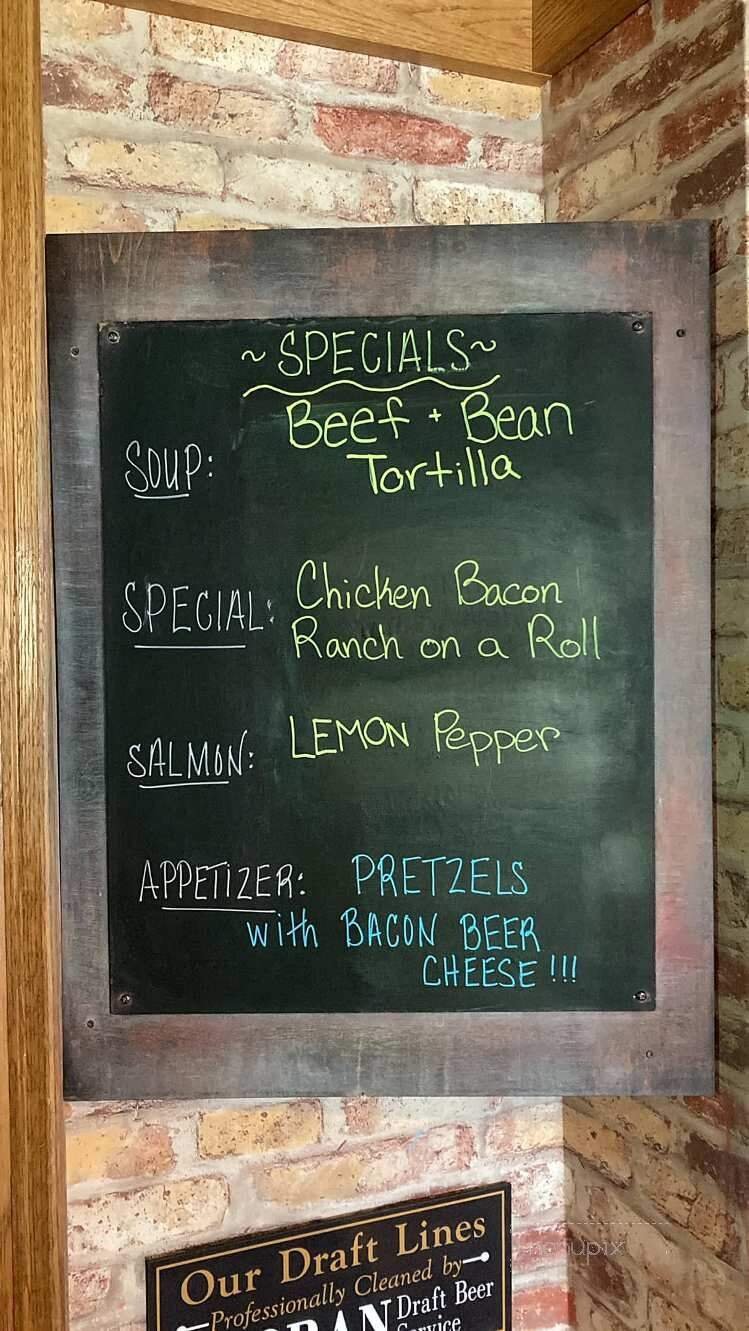 ~ SPECIALS ~
SOUP: Beef + Bean
Tortilla
SPECIAL: Chicken Bacon
Ranch on a Roll
SALMON: LEMON Pepper
APPETIZER: PRETZELS
with BACON BEER
CHEESE !!!
Our Draft Lines
Professionally Cleaned by
Draft Beer
Service